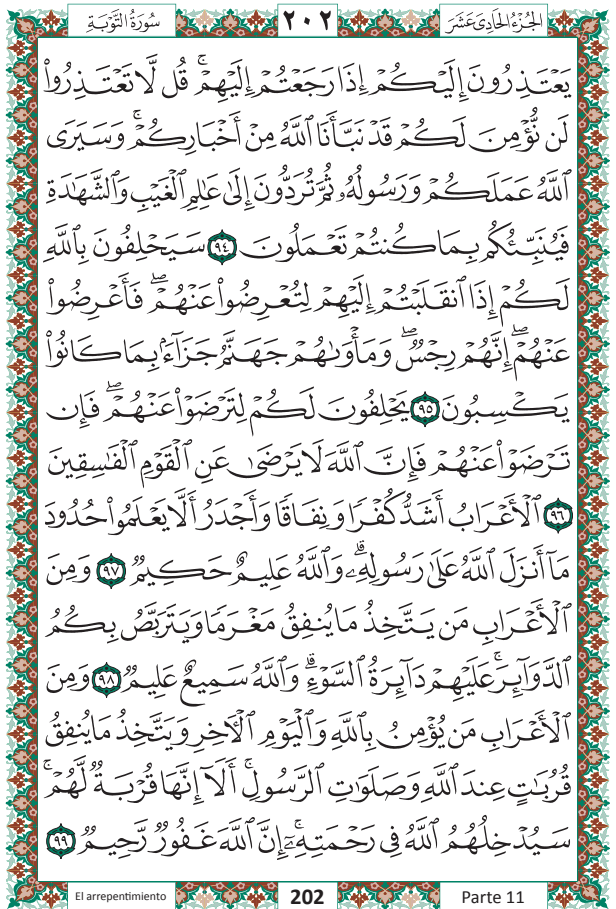 الجُزْءُ الحَادِىَ عَشَرَ ٢٠٢ سُورَةُ التَّوْبَةِ
يَعْتَذِرُونَ إِلَيْكُمْ إِذَا رَجَعْتُمْ إِلَيْهِمْ ۚ قُل لَّا تَعْتَذِرُوا۟
لَن نُّؤْمِنَ لَكُمْ قَدْ نَبَّأَنَا ٱللَّهُ مِنْ أَخْبَارِكُمْ ۚ وَسَيَرَى
ٱللَّهُ عَمَلَكُمْ وَرَسُولُهُۥ ثُمَّ تُرَدُّونَ إِلَىٰ عَٰلِمِ ٱلْغَيْبِ وَٱلشَّهَٰدَةِ
فَيُنَبِّئُكُم بِمَا كُنتُمْ تَعْمَلُونَ ۝٩٤ سَيَحْلِفُونَ بِٱللَّهِ
لَكُمْ إِذَا ٱنقَلَبْتُمْ إِلَيْهِمْ لِتُعْرِضُوا۟ عَنْهُمْ ۖ فَأَعْرِضُوا۟
عَنْهُمْ ۖ إِنَّهُمْ رِجْسٌ ۖ وَمَأْوَىٰهُمْ جَهَنَّمُ جَزَآءًۢ بِمَا كَانُوا۟
يَكْسِبُونَ ۝٩٥ يَحْلِفُونَ لَكُمْ لِتَرْضَوْا۟ عَنْهُمْ ۖ فَإِن
تَرْضَوْا۟ عَنْهُمْ فَإِنَّ ٱللَّهَ لَا يَرْضَىٰ عَنِ ٱلْقَوْمِ ٱلْفَٰسِقِينَ
۝٩٦ ٱلْأَعْرَابُ أَشَدُّ كُفْرًا وَنِفَاقًا وَأَجْدَرُ أَلَّا يَعْلَمُوا۟ حُدُودَ
مَآ أَنزَلَ ٱللَّهُ عَلَىٰ رَسُولِهِۦ ۗ وَٱللَّهُ عَلِيمٌ حَكِيمٌ ۝٩٧ وَمِنَ
ٱلْأَعْرَابِ مَن يَتَّخِذُ مَا يُنفِقُ مَغْرَمًا وَيَتَرَبَّصُ بِكُمُ
ٱلدَّوَآئِرَ ۚ عَلَيْهِمْ دَآئِرَةُ ٱلسَّوْءِ ۗ وَٱللَّهُ سَمِيعٌ عَلِيمٌ ۝٩٨ وَمِنَ
ٱلْأَعْرَابِ مَن يُؤْمِنُ بِٱللَّهِ وَٱلْيَوْمِ ٱلْءَاخِرِ وَيَتَّخِذُ مَا يُنفِقُ
قُرُبَٰتٍ عِندَ ٱللَّهِ وَصَلَوَٰتِ ٱلرَّسُولِ ۚ أَلَآ إِنَّهَا قُرْبَةٌ لَّهُمْ ۚ
سَيُدْخِلُهُمُ ٱللَّهُ فِى رَحْمَتِهِۦٓ ۗ إِنَّ ٱللَّهَ غَفُورٌ رَّحِيمٌ ۝٩٩
El arrepentimiento 202 Parte 11